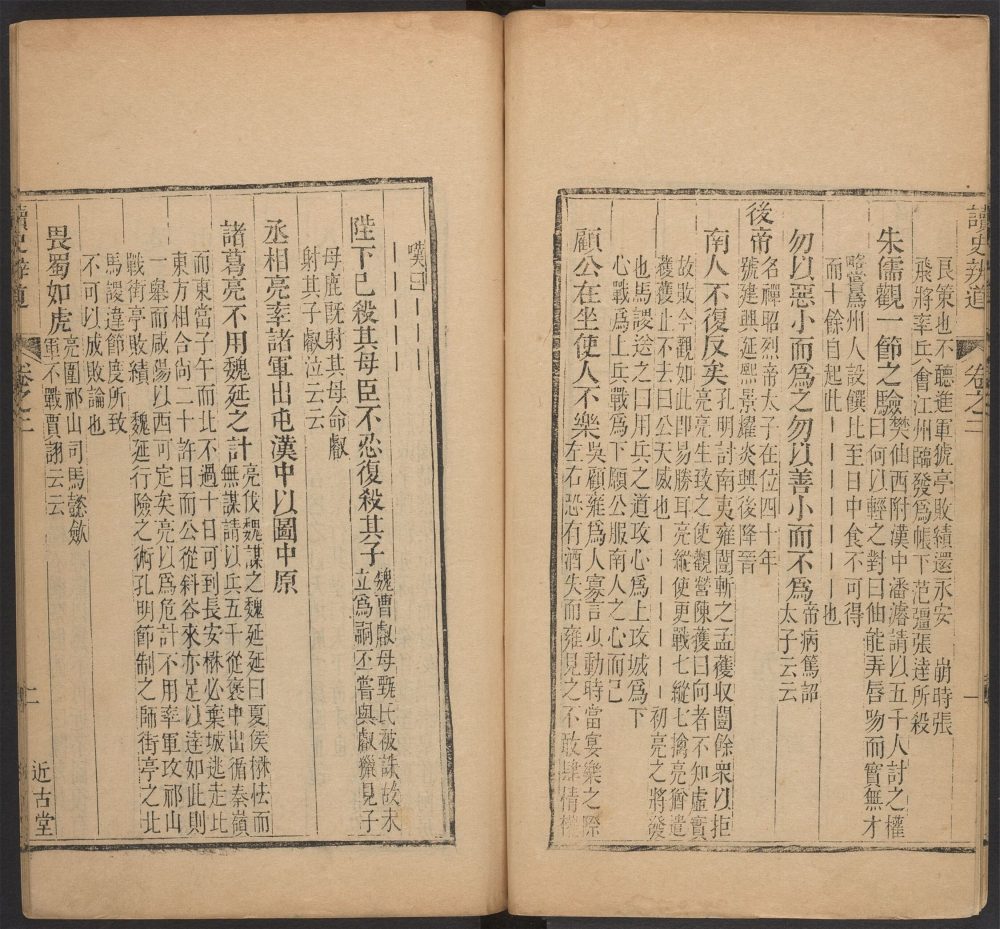 讀史辨道
卷之三
一
良策也不聽進軍猇亭敗績還永安 崩時張
飛將率兵會江州臨發為帳下范彊張達所殺
朱儒觀一節之驗樊伷西附漢中潘濬請以五千人討之權
曰何以輕之對曰伷能弄唇吻而實無才
嘗為州人設饌比至日中食不可得
而十餘自起此 也
勿以惡小而為之勿以善小而不為帝病篤詔
太子云云
後帝名禪昭烈帝太子在位四十年
號建興延熙景耀炎興後降晉
南人不復反矣孔明討南夷雍闓斬之孟獲収闓餘衆以拒
亮亮生致之使觀營陳獲曰向者不知虛實
故敗今觀如此即易勝耳亮縱使更戰七縱七擒亮猶遣
獲獲止不去曰公天威也 初亮之將發
也馬謖送之曰用兵之道攻心為上攻城為下
心戰為上兵戰為下願公服南人之心而已
顧公在坐使人不樂吳顧雍為人寡言少動時當宴樂之際
左右恐有酒失而雍見之不敢肆情權
嘆曰
陛下已殺其母臣不忍復殺其子魏曹叡母甄氏被誅故未
立為嗣丕嘗與叡獵見子
母鹿既射其母命叡
射其子叡泣云云
丞相亮率諸軍出屯漢中以圖中原
諸葛亮不用魏延之計亮伐魏謀之魏延延曰夏侯楙怯而
無謀請以兵五千從褒中出循秦嶺
而東當子午而北不過十日可到長安楙必棄城逃走比
東方相合尚二十許日而公從斜谷來亦足以達如此則
一舉而咸陽以西可定矣亮以為危計不用率軍攻祁山
戰街亭敗績 魏延行險之術孔明節制之師街亭之北
馬謖違節度所致
不可以成敗論也
畏蜀如虎亮圍祁山司馬懿斂
軍不戰賈詡云云
讀史辨道
卷之三
二
近古堂